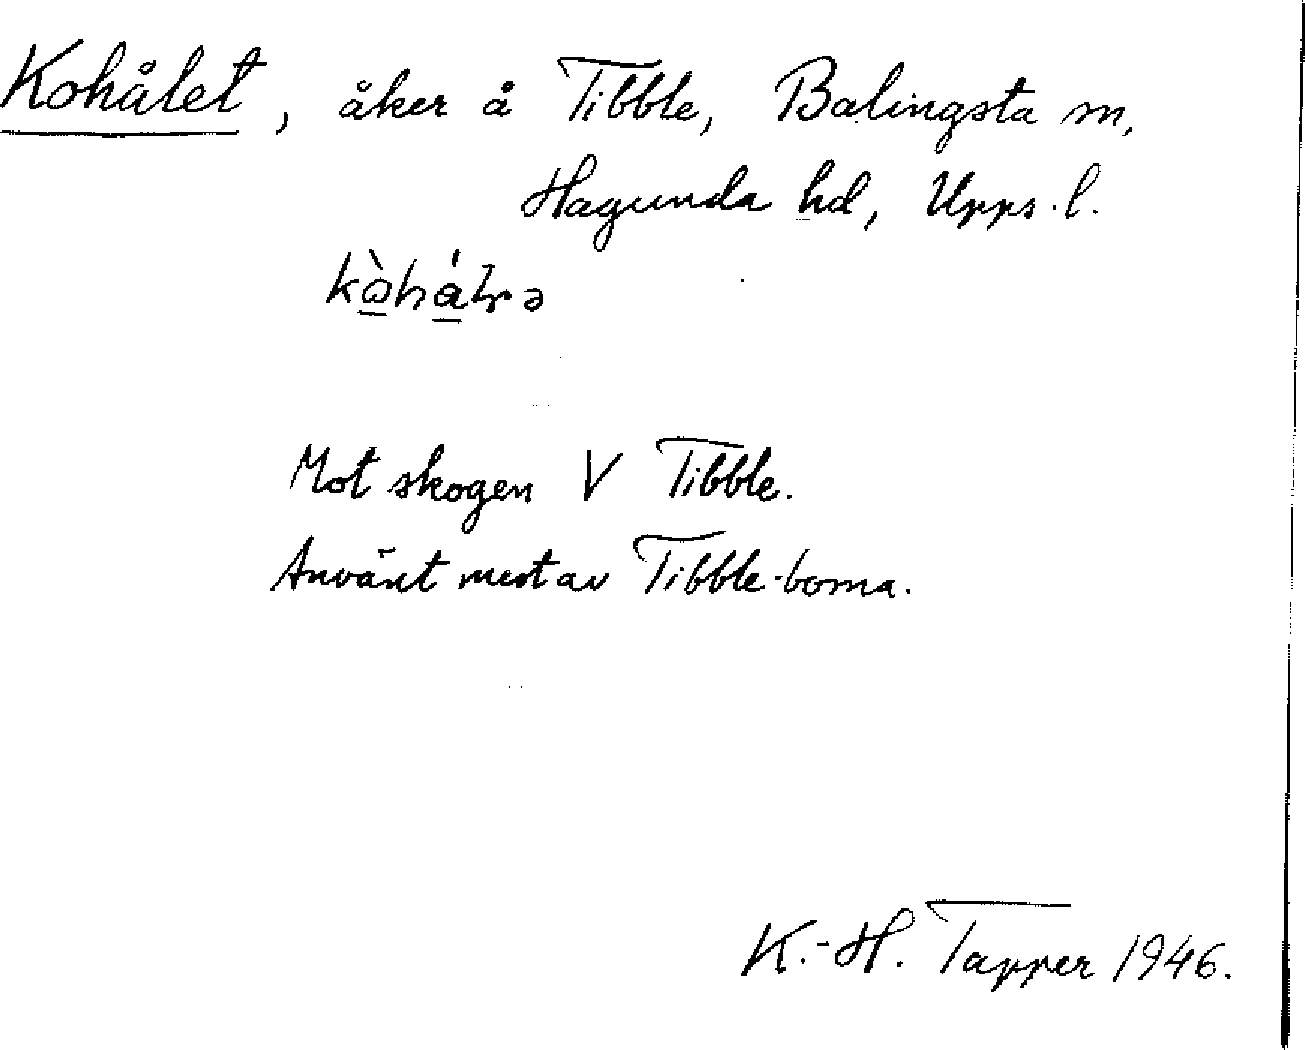 Kohålet, åker å Tibble, Balingsta sn,
Hagunda hd, Upps. l.
Mot skogen V Tibble.
Använt mest av Tibble-borna.
K.-H. Tapper 1946.